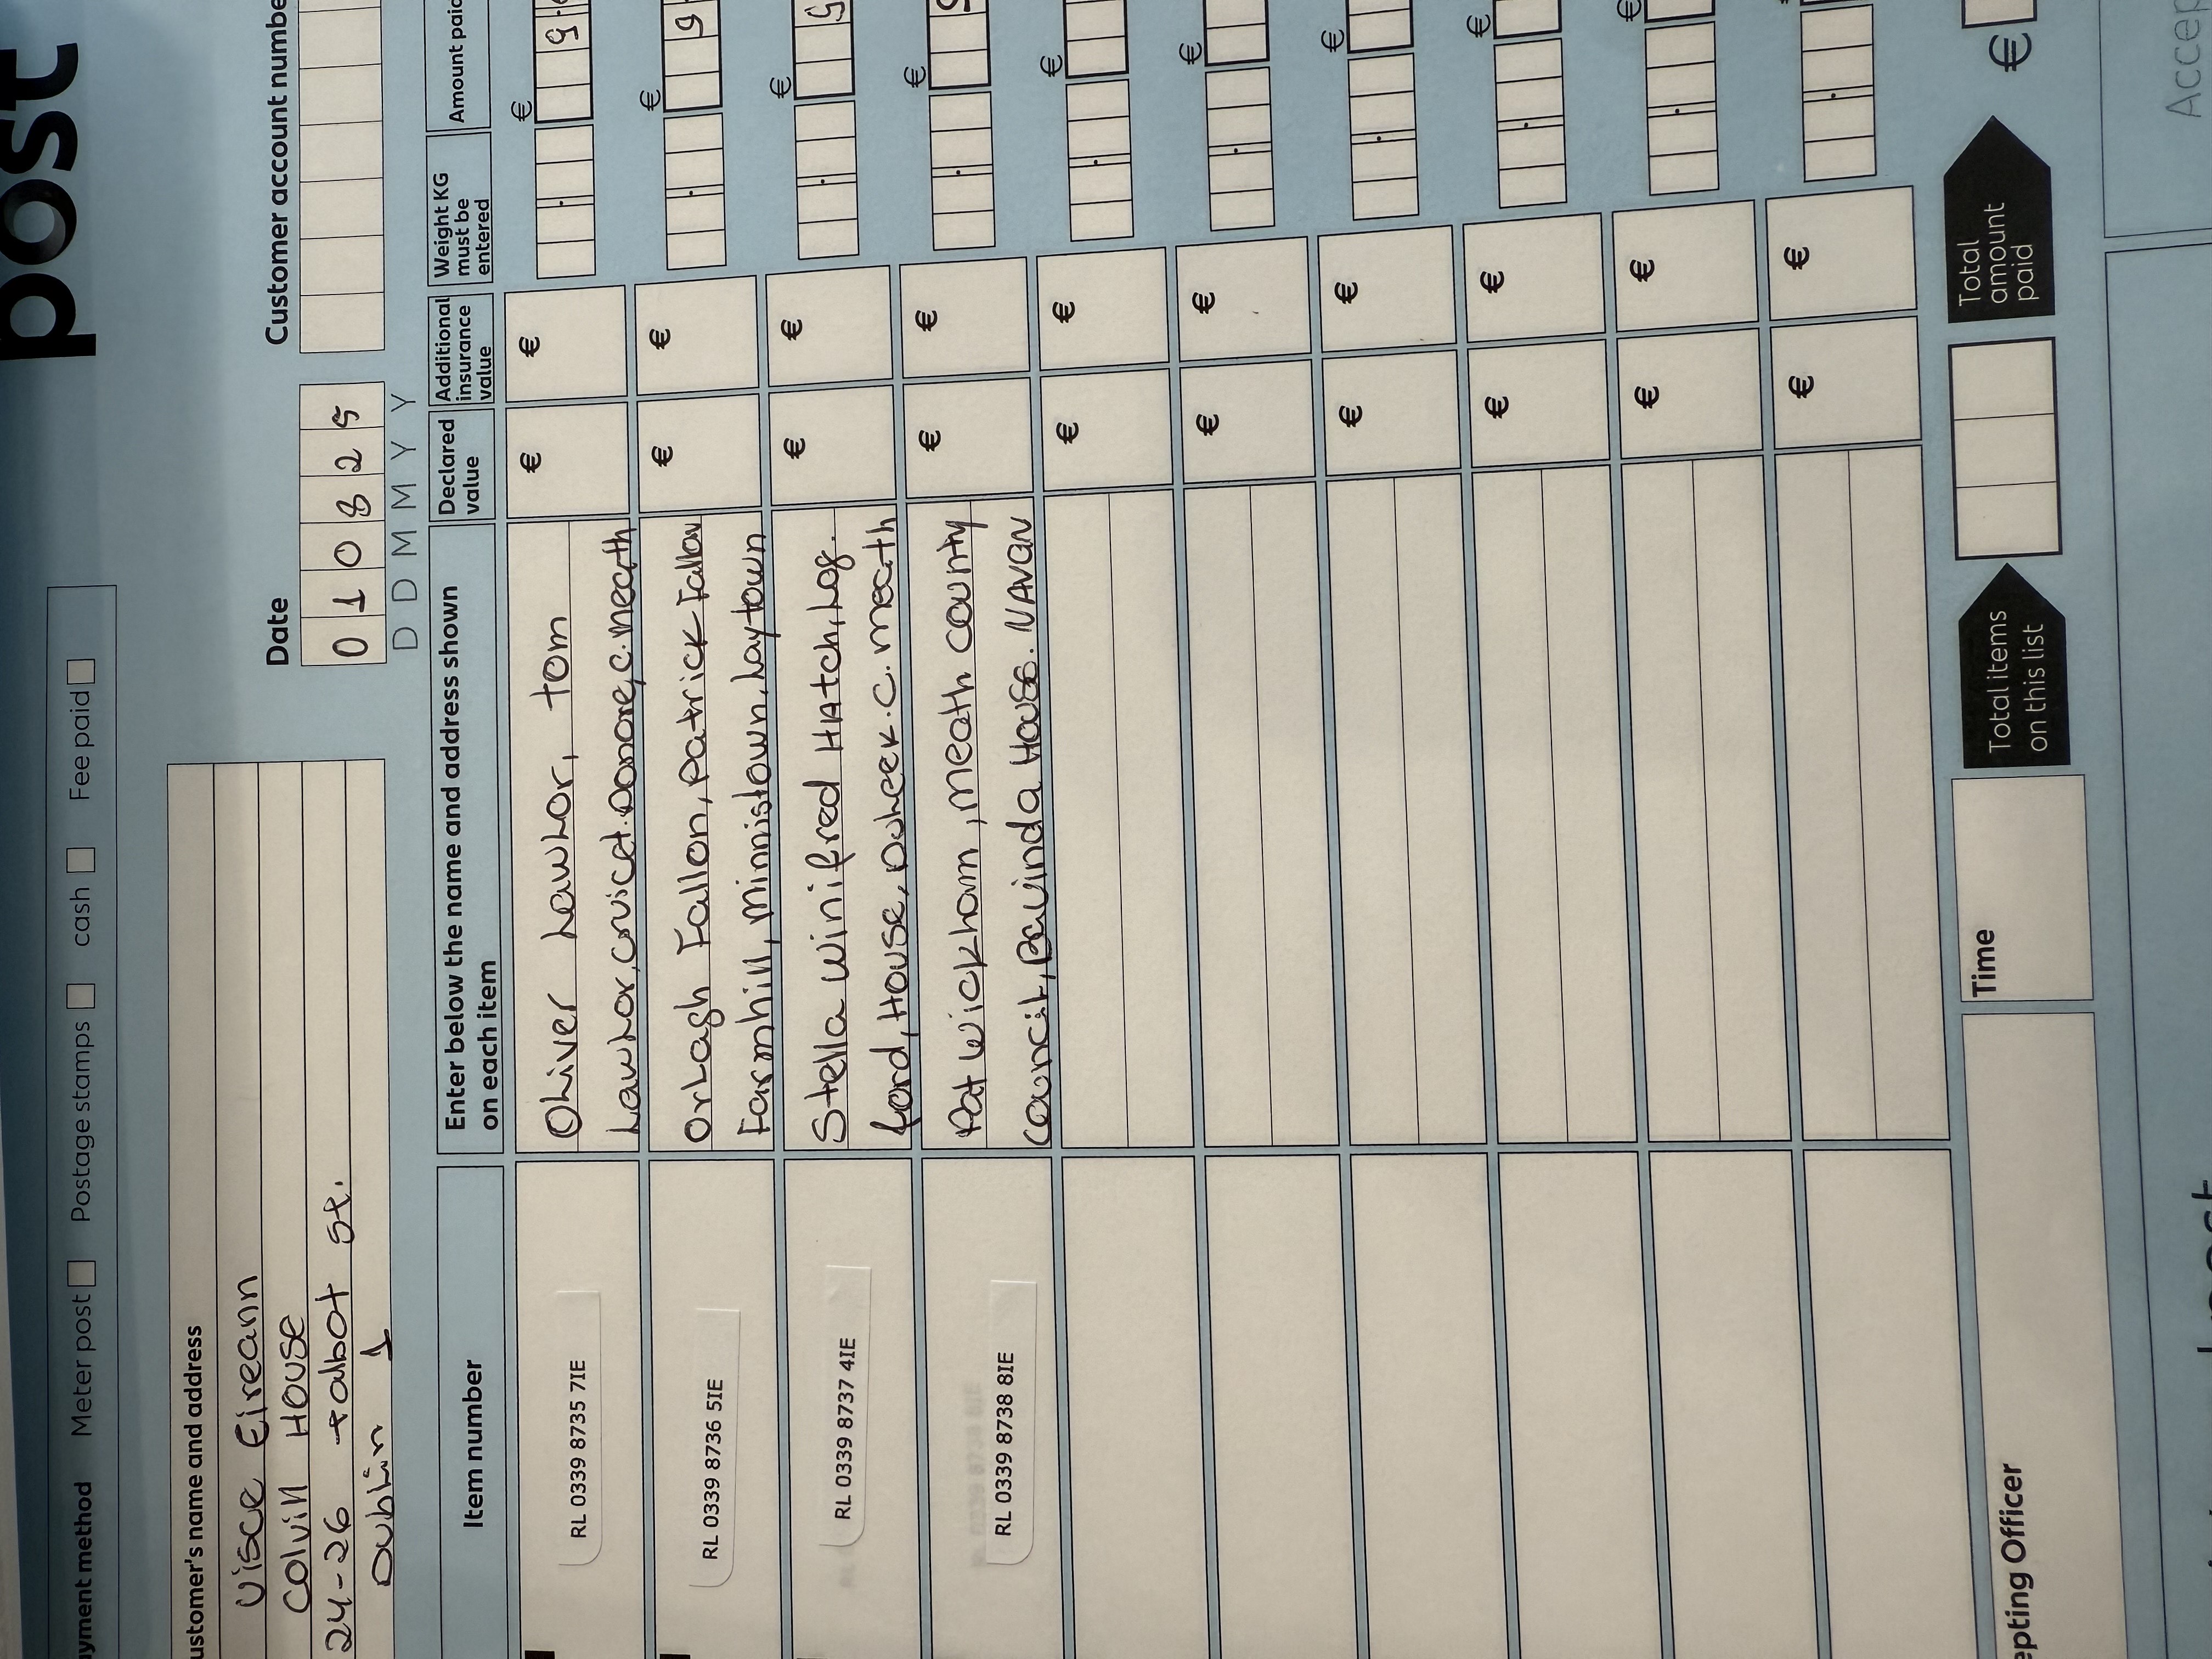 post
Payment method Meter post Postage stamps cash Fee paid
Customer's name and address
Uisce Eireann
Colvill House
24-26 talbot st.
Dublin 1
Date
010825
D D M M Y Y
Customer account number
Item number
Enter below the name and address shown on each item
Declared value
Additional insurance value
Weight KG must be entered
Amount paid
RL 0339 8735 7IE
Oliver Lawlor, tom
Lawlor, cruicet. Donore, c. meath
€ € €
RL 0339 8736 5IE
Orlagh Fallon, patrick Fallon
Farmhill, Minnistown, Laytown
€ € €
RL 0339 8737 4IE
Stella Winifred HAtch, Log.
ford, House, Duleek. C. meath
€ € €
RL 0339 8738 8IE
Pat Wickham, meath county
council, Bouinda House. NAvan
€ € €
€ € €
€ € €
€ € €
€ € €
€ € €
€ €
Accepting Officer
Time
Total items on this list
Total amount paid
€